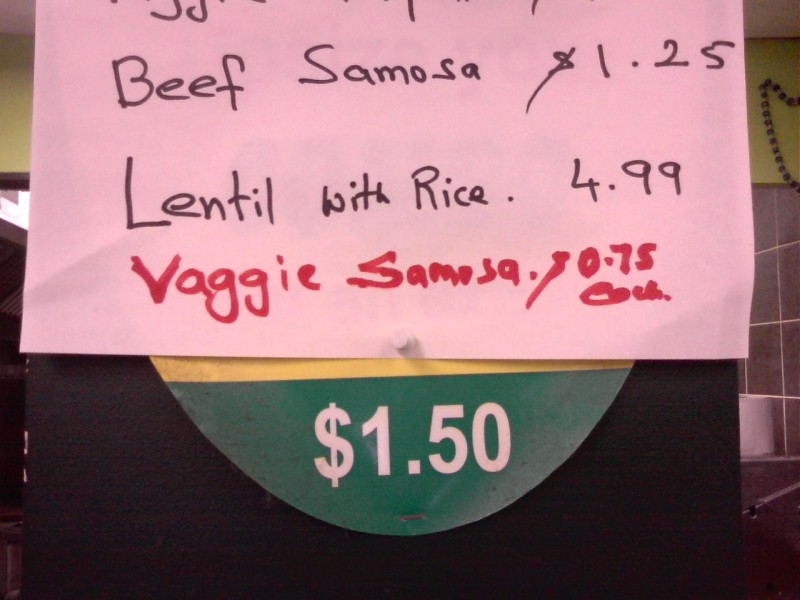 Beef Samosa $1.25
Lentil with Rice. 4.99
Vaggie Samosa. $0.75
each.
$1.50